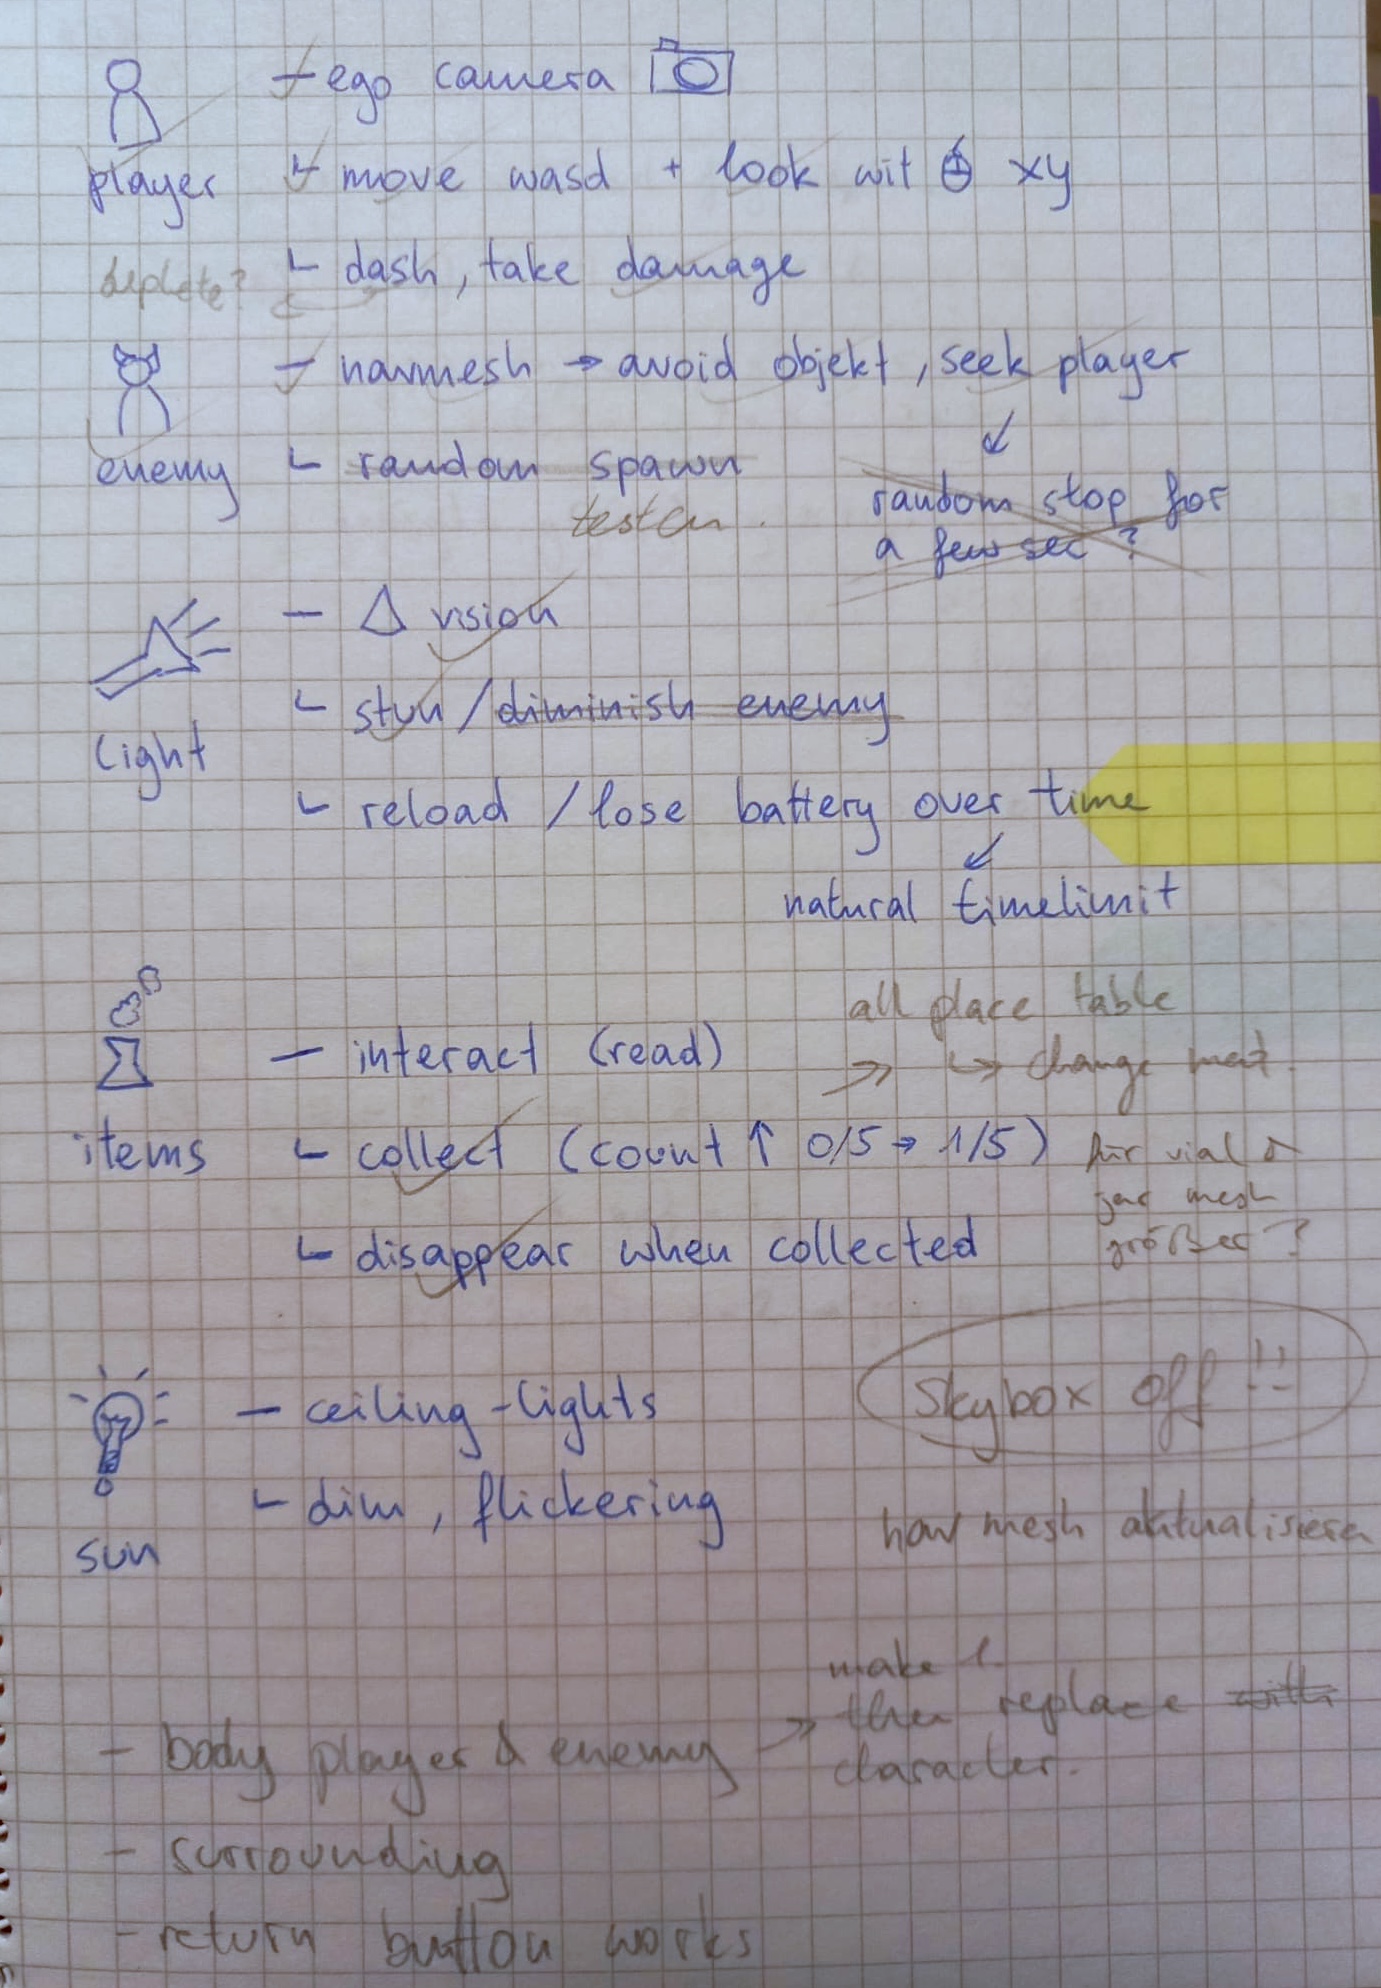 - ego camera
player
- move wasd + look wit xy
deplete?
- dash, take damage
- navmesh → avoid objekt, seek player
enemy
- random spawn
testen.
random stop for
a few sec ?
- Δ vision
- stun/diminish enemy
light
- reload / lose battery over time
natural timelimit
all place table
- interact (read)
↳ change mat.
items
- collect (count ↑ 0/5 → 1/5)
für vial &
mesh
größer ?
- disappear when collected
Skybox off !!
- ceiling-lights
- dim, flickering
sun
mesh aktualisieren
make 1.
then replace with
- body player & enemy →
character.
- surrounding
- return button works